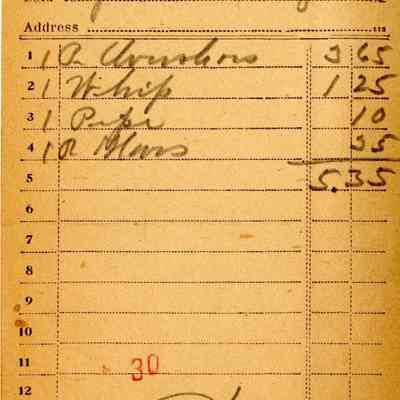 Address
1 1 Pr Overshoes 3 65
2 1 Whip 1 25
3 1 Pipe 10
4 1 Pr Gloves 35
5 5.35
6
7
8
9
10
11 30
12